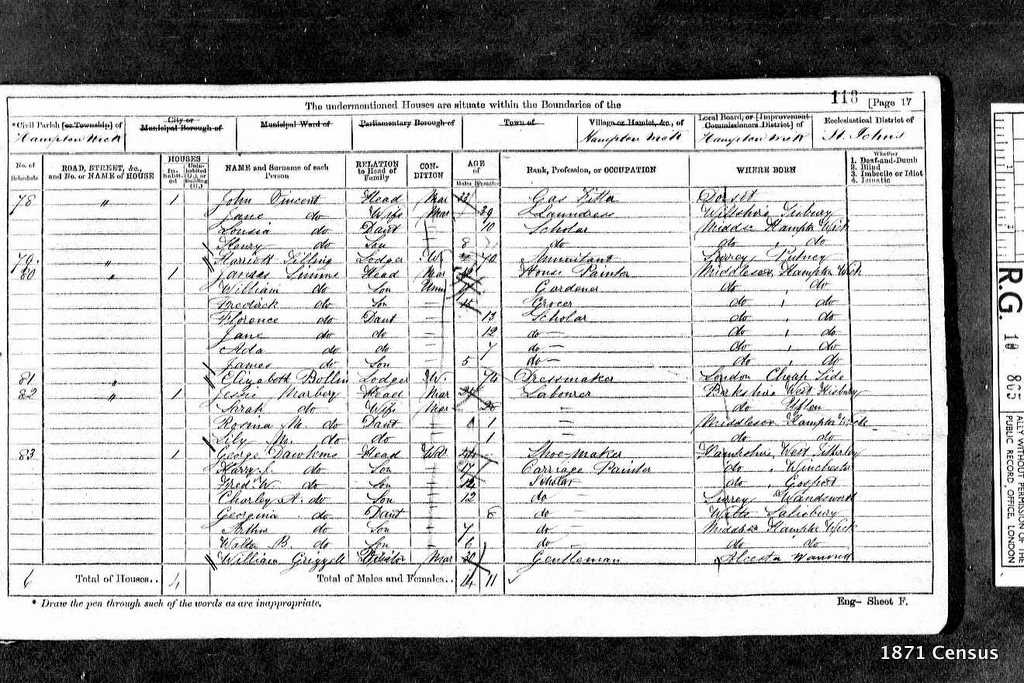 118 [Page 17
The undermentioned Houses are situate within the Boundaries of the
*Civil Parish [or Township] of
City or Municipal Borough of
Municipal Ward of
Parliamentary Borough of
Town of
Village or Hamlet, &c., of
Local Board, or [Improvement Commissioners District] of
Ecclesiastical District of
Hampton Wick
Hampton Wick
Hampton Wick
St. Johns
No. of Schedule
ROAD, STREET, &c., and No. or NAME of HOUSE
HOUSES
Inhabited
Uninhabited (U.), or Building (B.)
NAME and Surname of each Person
RELATION to Head of Family
CONDITION
AGE of
Males Females
Rank, Profession, or OCCUPATION
WHERE BORN
Whether
1. Deaf-and-Dumb
2. Blind
3. Imbecile or Idiot
4. Lunatic
78 " 1 John Vincent Head Mar Gas Fitter Dorset
Jane do Wife Mar 39 Laundress Wiltshire Tisbury
Louisa do Daut 10 Scholar Middsx Hampton Wick
Henry do Son 8 do do do
79 " Harriett Lodger W. 70 Annuitant Surrey Putney
80 " 1 James Simms Head Mar House Painter Middlesex Hampton Wick
William do Son Unm Gardener do do
Frederick do Son Grocer do do
Florence do Daut 13 Scholar do do
Jane do do 12 do do do
Ada do do 7 do do do
James do Son 5 do do do
81 " Elizabeth Lodger W. 74 Dressmaker London Cheap Side
82 " 1 Jessie Head Mar Labourer Berkshire West
Sarah do Wife Mar do Ufton
Rosena M. do Daut 1 Middlesex Hampton Wick
Lily M. do do 1 do do
83 1 George Dawkins Head Wid Shoe-maker Hampshire West Titherley
Harry J. do Son 17 Carriage Painter do Winchester
Fred W. do Son Scholar do Gosport
Charley A. do Son 12 do Surrey Wandsworth
Georgina do Daut 8 do Wilts Salisbury
Arthur do Son 7 do Middsx Hampton Wick
Walter B. do Son 6 do do do
William Visitor Mar Gentleman
6 Total of Houses.. 4 Total of Males and Females.. 14 11
* Draw the pen through such of the words as are inappropriate.
Eng- Sheet F.
R.G. 10 865
ALLY WITHOUT PERMISSION OF THE
PUBLIC RECORD OFFICE, LONDON
1871 Census